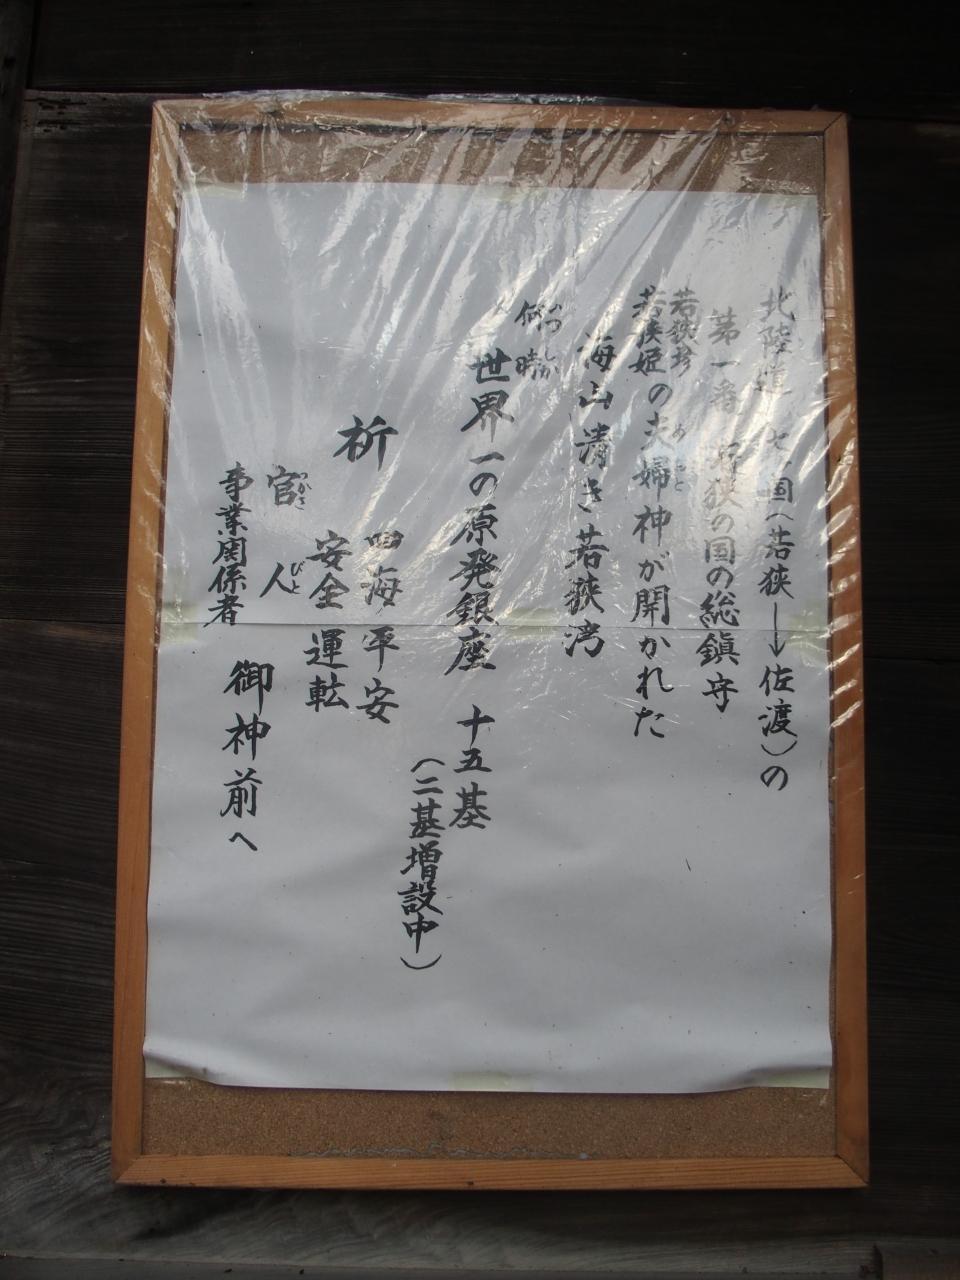 北陸道 七ヶ国(若狭→佐渡)の
第一番 若狭の国の総鎮守
若狭彦
若狭姫の夫婦神が開かれた
めおと
海山清き若狭湾
何時
いつしか
世界一の原発銀座 十五基
(二基増設中)
祈 四海平安
安全運転
官人
つかさびと
事業関係者 御神前へ